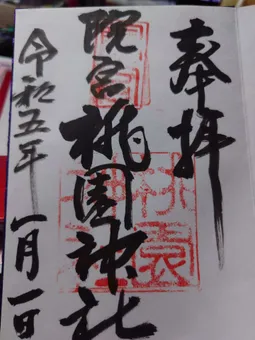 奉拝
晩宮
桃園神社
令和五年
一月一日